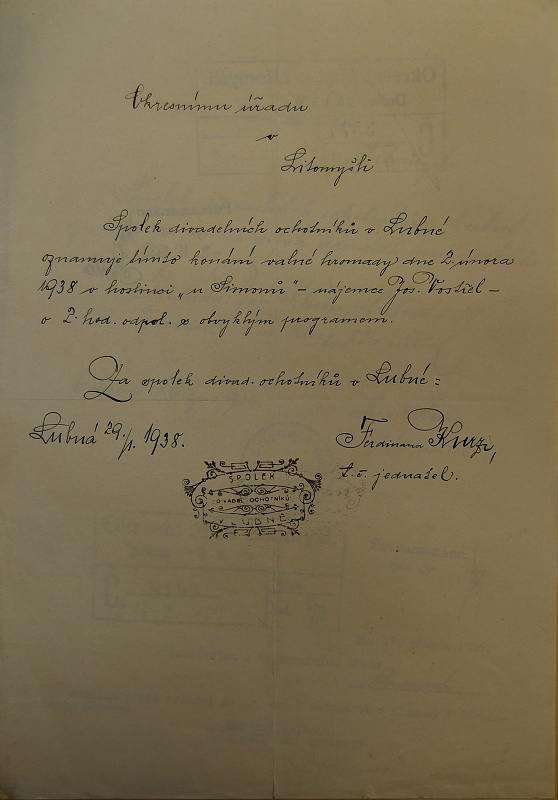 Okresnímu úřadu
v
Litomyšli
Spolek divadelních ochotníků v Lubné
oznamuje tímto konání valné hromady dne 2. února
1938 v hostinci „u Šimonů" – nájemce Jos. Vostřel –
o 2. hod. odpol. s obvyklým programem.
Za spolek divad. ochotníků v Lubné:
Lubná 29./1. 1938.
Ferdinand Kurz,
t. č. jednatel.
SPOLEK
DIVADEL. OCHOTNÍKŮ
V LUBNÉ